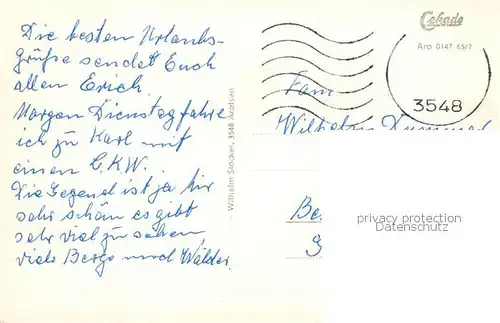 Die besten Urlaubs-
grüße sendet Euch
allen Erich.
Morgen Dienstag fahre
ich zu Karl mit
einen L.K.W.
Die Gegend ist ja hir
sehr schön es gibt
sehr viel zu sehen
viele Berge und Wälder.
Wilhelm Stöcker, 3548 Arolsen
Cekade
Aro 0147 65/7
3548
Fam
Wilhelm
Be
privacy protection
Datenschutz